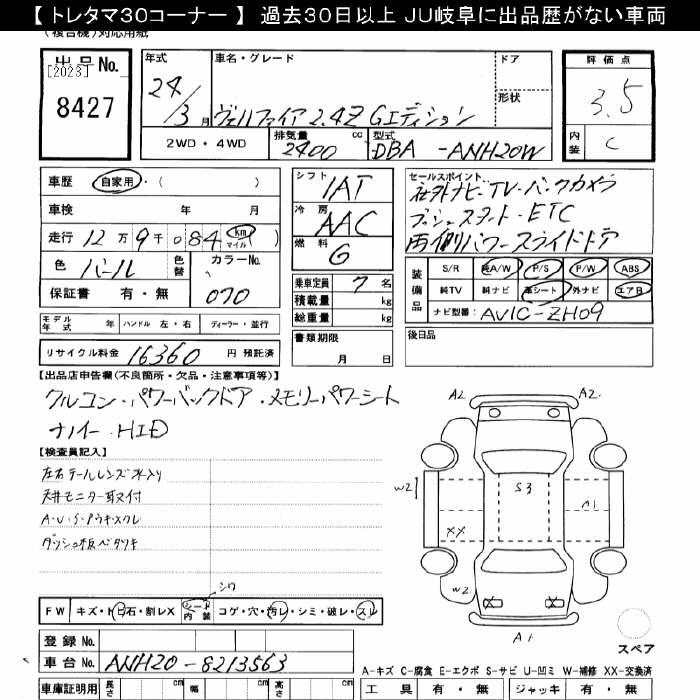 【 トレタマ30コーナー 】 過去30日以上 JU岐阜に出品歴がない車両
(複合機)対応用紙
出品 No. 年式 車名・グレード ドア 評価点
[2023]
8427 24/3月 ヴェルファイア 2.4Z Gエディション 形状 3.5
2WD・4WD 排気量 cc 型式 内装 C
2400 DBA -ANH20W
車歴 自家用・( ) シフト IAT セールスポイント
社外ナビ・TV・バックカメラ
車検 年 月 冷房 AAC プッシュスタート・ETC
走行 12万9千084 km マイル ( ) 燃料 G 両側パワースライドドア
色 パール 色替 カラーNo. 070
保証書 有・無
乗車定員 7名
積載量 kg
総重量 kg
装備品 S/R 純A/W P/S P/W ABS
純TV 純ナビ 革シート 外ナビ エアB
ナビ型番: AVIC-ZH09
モデル年式 年 ハンドル 左・右 ディーラー・並行 書類期限 月 日 後日品
リサイクル料金 16360 円 預託済
【出品店申告欄(不良箇所・欠品・注意事項等)】
クルコン・パワーバックドア・メモリーパワーシート
ナノイー・HID
【検査員記入】
左右テールレンズ水入り
天井モニター取付
A・U・S・Pウキスクレ
ダッシュ板ベタツキ
A2 A2
W2 S3 A1
XX
W2 X X
A1
スペア
シワ
FW キズ・ト石・割レX シート内装 コゲ・穴・汚レ・シミ・破レ・スレ
登録 No.
車台 No. ANH20-8213563
A-キズ C-腐食 E-エクボ S-サビ U-凹ミ W-補修 XX-交換済
車庫証明用 長さ cm 幅 cm 高さ cm 工具 有・無 ジャッキ 有・無